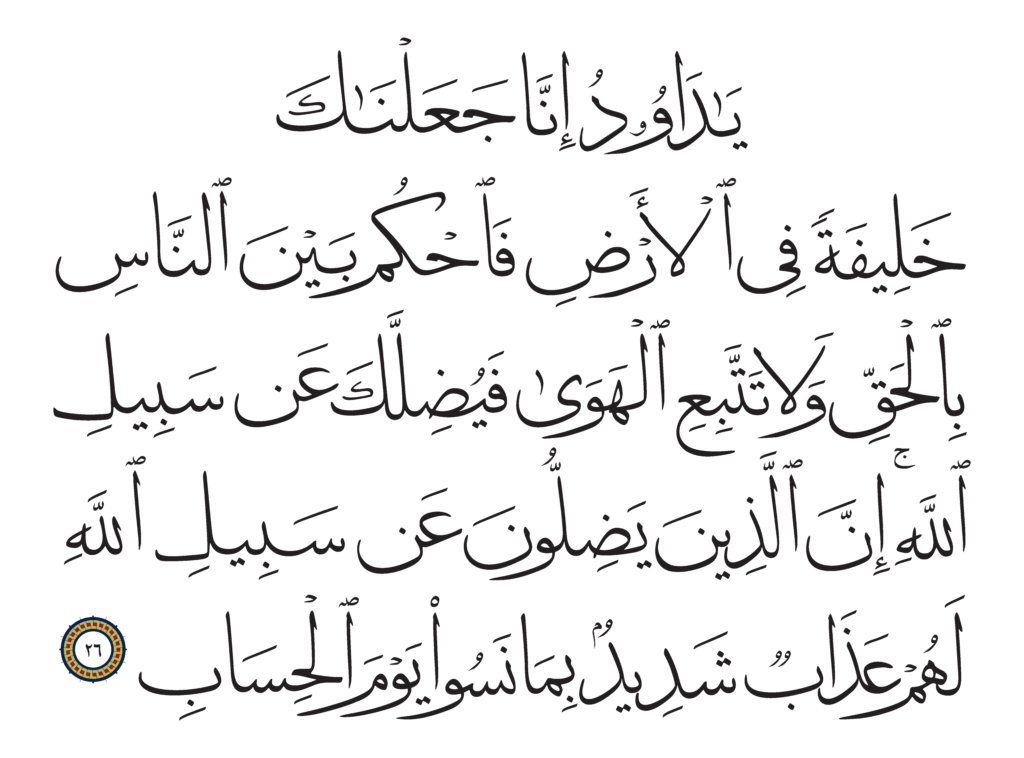 يَٰدَاوُۥدُ إِنَّا جَعَلْنَٰكَ
خَلِيفَةً فِى ٱلْأَرْضِ فَٱحْكُم بَيْنَ ٱلنَّاسِ
بِٱلْحَقِّ وَلَا تَتَّبِعِ ٱلْهَوَىٰ فَيُضِلَّكَ عَن سَبِيلِ
ٱللَّهِ ۚ إِنَّ ٱلَّذِينَ يَضِلُّونَ عَن سَبِيلِ ٱللَّهِ
لَهُمْ عَذَابٌ شَدِيدٌۢ بِمَا نَسُوا۟ يَوْمَ ٱلْحِسَابِ ٢٦